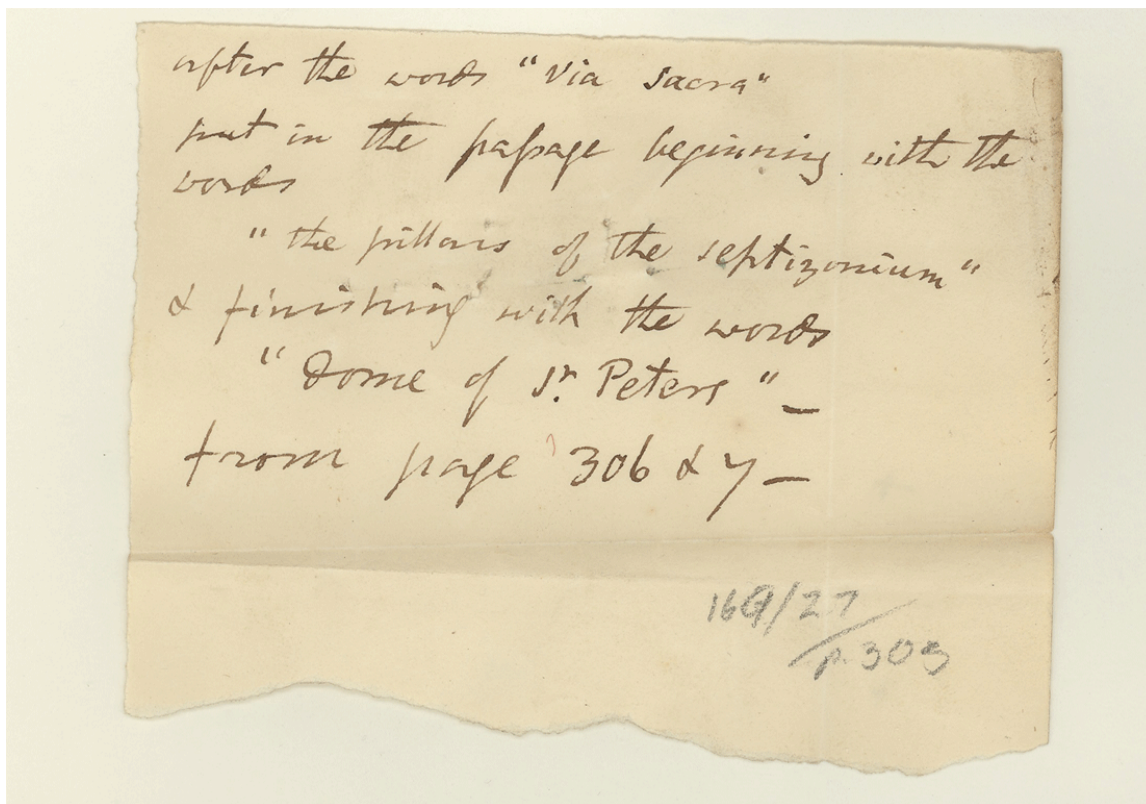 after the words "Via Sacra"
put in the paſsage beginning with the
words
"the pillars of the septizonium"
& finishing with the words
"Dome of St. Peters" —
from page 306 & 7 —
169/27
p. 303